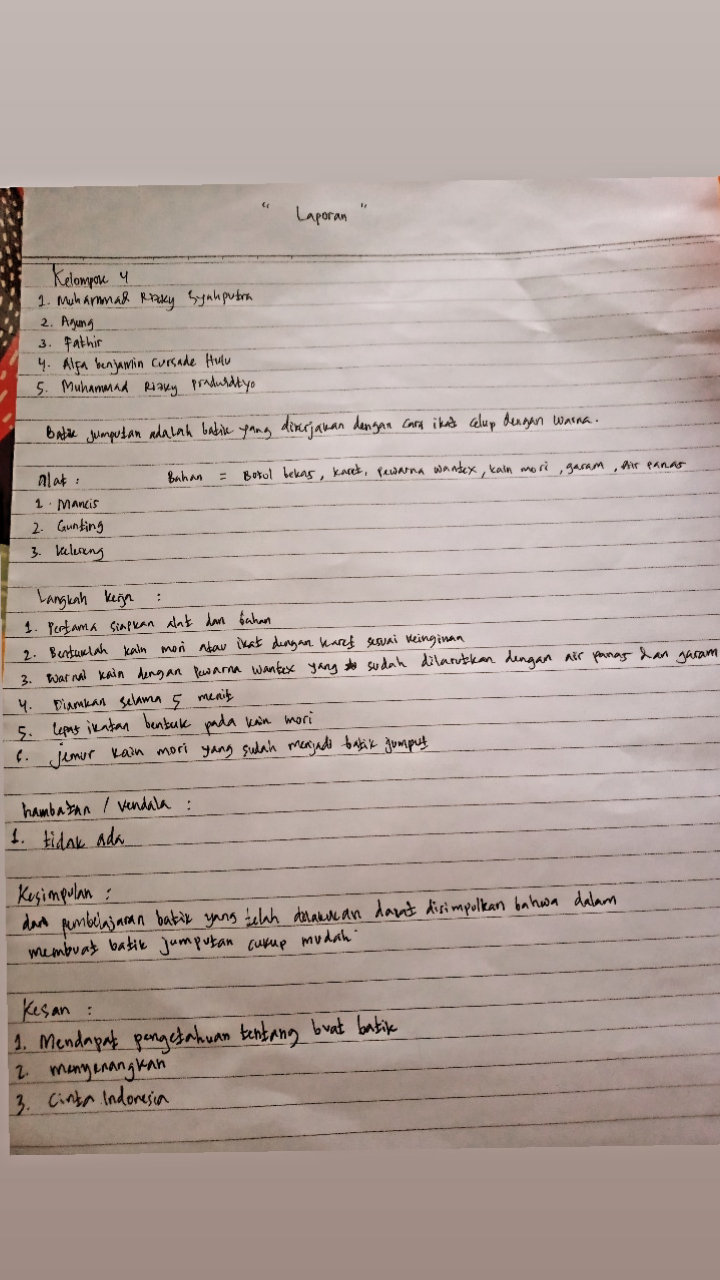 " Laporan "
Kelompok 4
1. Muhammad Rizky Syahputra
2. Agung
3. Fathir
4. Alfa benjamin cursade Hulu
5. Muhammad Rizky
Batik jumputan adalah batik yang dikerjakan dengan cara ikat celup dengan warna.
Alat : Bahan = Botol bekas, karet, pewarna wantex, kain mori, garam, Air panas
1. Mancis
2. Gunting
3. Kelereng
Langkah kerja :
1. Pertama siapkan alat dan bahan
2. Bentuklah kain mori atau ikat dengan karet sesuai keinginan
3. Warnai kain dengan pewarna wantex yang sudah dilarutkan dengan air panas dan garam
4. Diamkan selama 5 menit
5. Lepas ikatan bentuk pada kain mori
6. jemur kain mori yang sudah menjadi batik jumput
hambatan / kendala :
1. tidak ada
Kesimpulan :
dari pembelajaran batik yang telah dilakukan dapat disimpulkan bahwa dalam
membuat batik jumputan cukup mudah
Kesan :
1. Mendapat pengetahuan tentang buat batik
2. menyenangkan
3. Cinta Indonesia